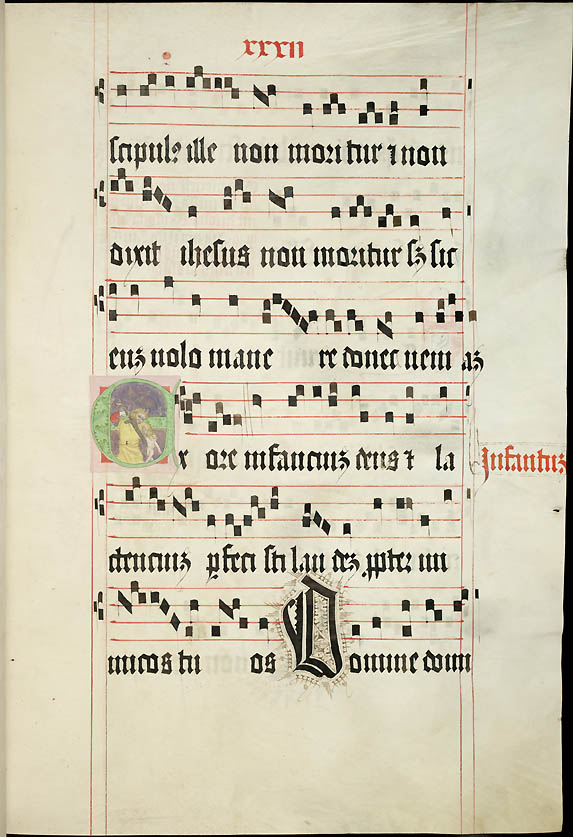 xxxii
scipulꝰ ille non moritur ⁊ non
dixit ihesus non moritur sꝫ sic
euꝫ uolo mane re donec ueni aꝫ
Ex ore infanciuꝫ deus ⁊ la
Infantuꝫ
ctenciuꝫ ꝑfeci sti lau deꝫ ꝓpter ini
micos tu os Domine dom